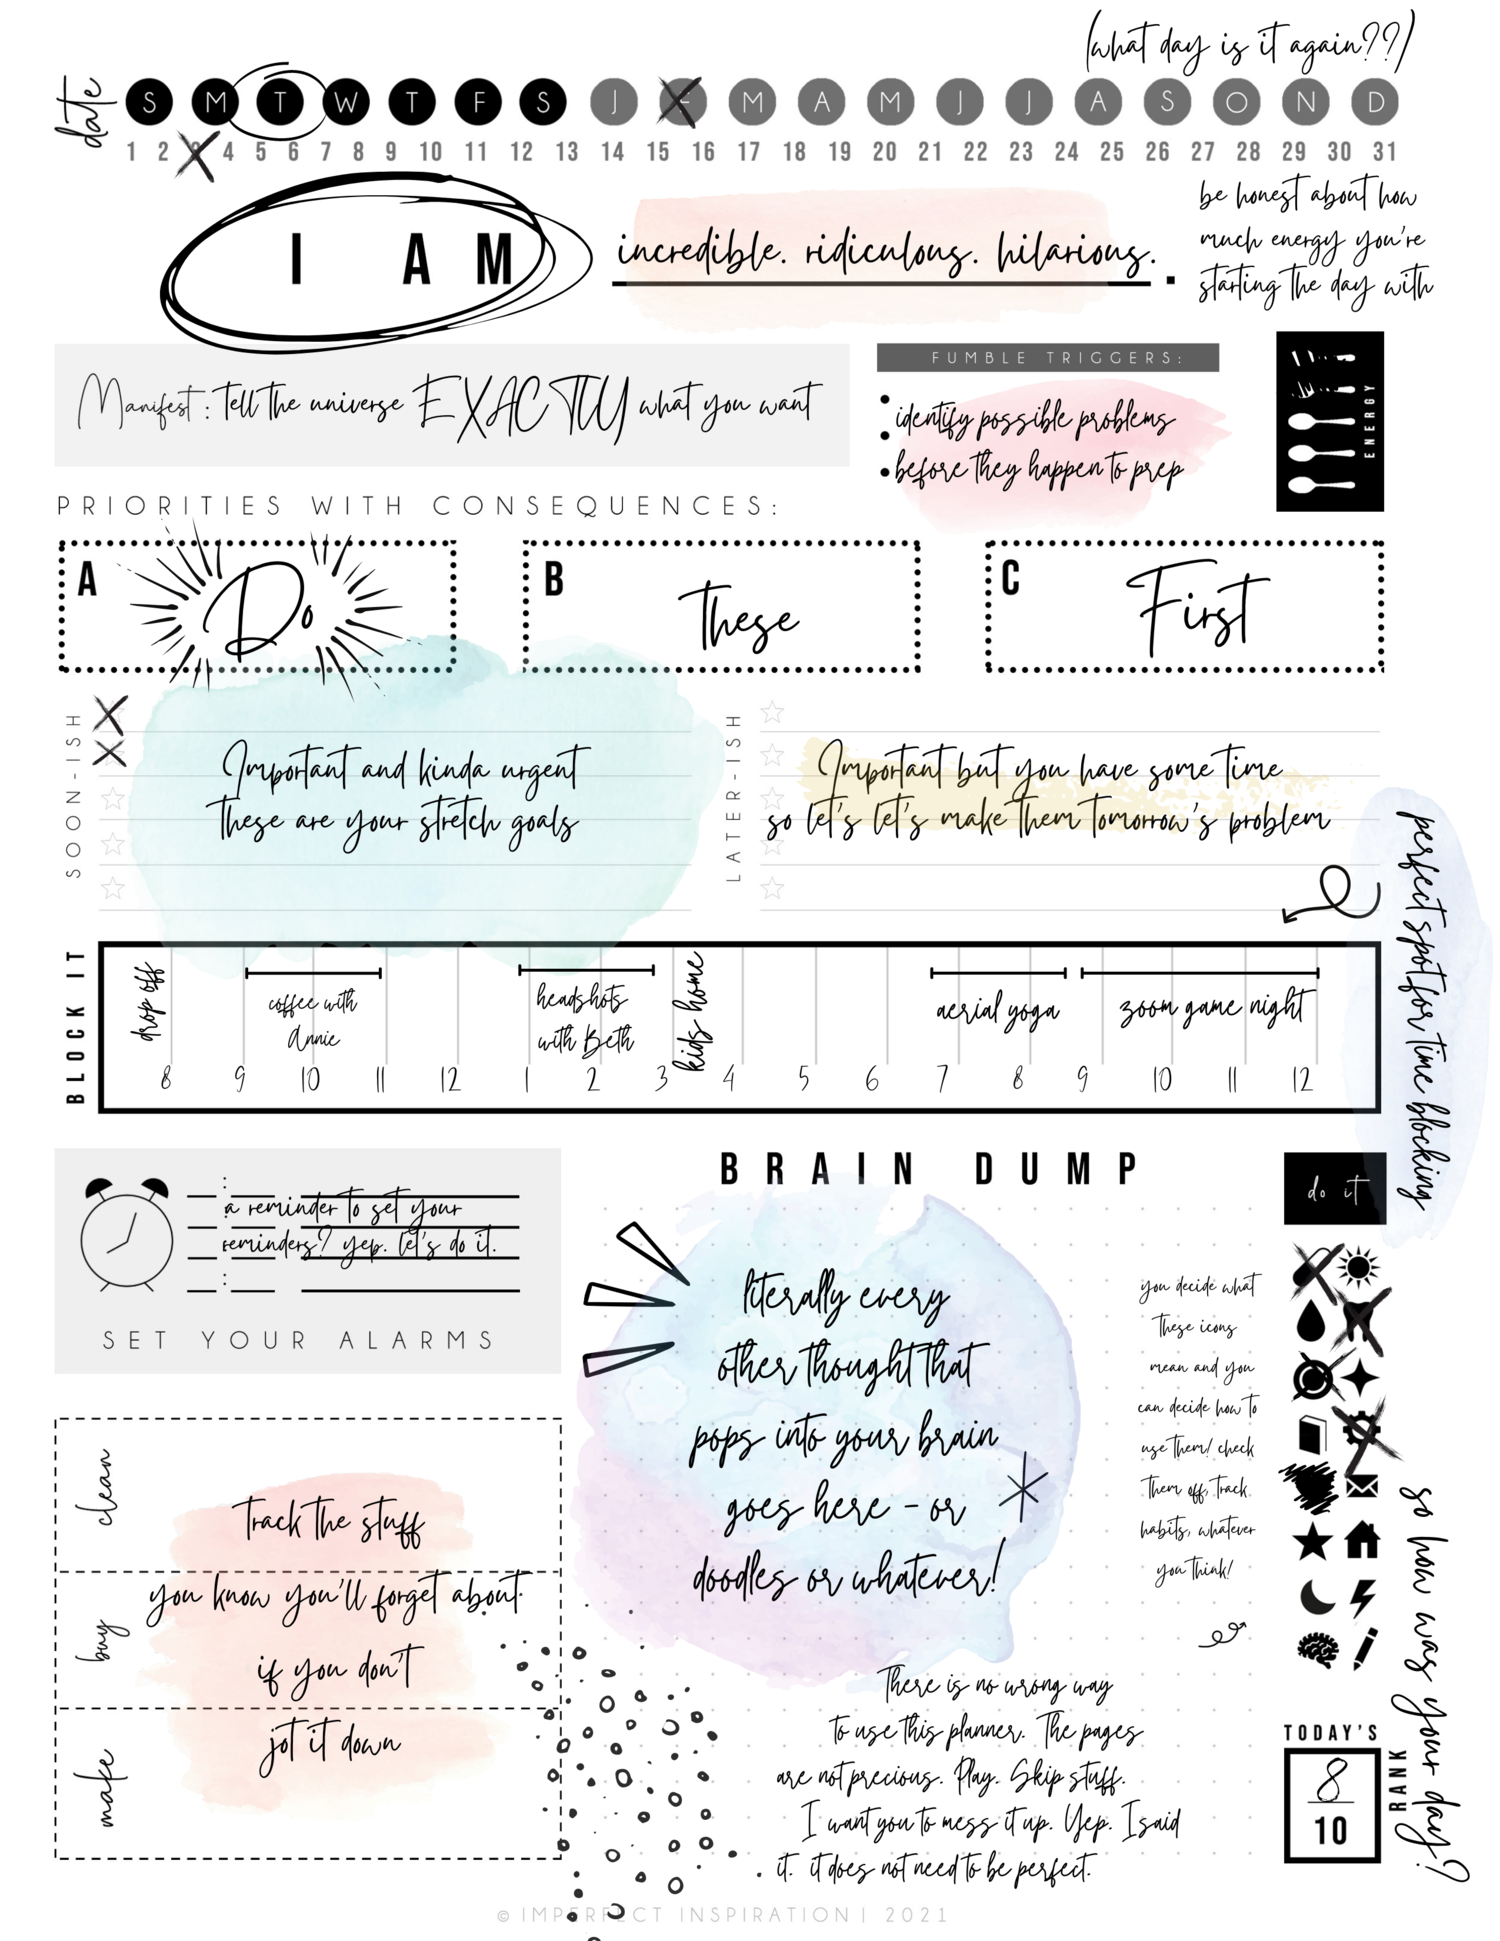 (what day is it again??)
date
S M T W T F S J F M A M J J A S O N D
1 2 3 4 5 6 7 8 9 10 11 12 13 14 15 16 17 18 19 20 21 22 23 24 25 26 27 28 29 30 31
I AM incredible. ridiculous. hilarious. .
be honest about how
much energy you're
starting the day with
Manifest: tell the universe EXACTLY what you want
FUMBLE TRIGGERS:
• identify possible problems
• before they happen to prep
ENERGY
PRIORITIES WITH CONSEQUENCES:
A Do
B These
C First
SOON-ISH
Important and kinda urgent
These are your stretch goals
LATER-ISH
Important but you have some time
so let's let's make them tomorrow's problem
perfect spot for time blocking
BLOCK IT
drop off
coffee with
Annie
headshots
with Beth
kids home
aerial yoga
zoom game night
8 9 10 11 12 1 2 3 4 5 6 7 8 9 10 11 12
a reminder to set your
reminders? yep. let's do it.
SET YOUR ALARMS
BRAIN DUMP
literally every
other thought that
pops into your brain
goes here - or
doodles or whatever!
do it
you decide what
these icons
mean and you
can decide how to
use them! check
them off, track
habits, whatever
you think!
clean
buy
make
track the stuff
you know you'll forget about
if you don't
jot it down
There is no wrong way
to use this planner. The pages
are not precious. Play. Skip stuff.
I want you to mess it up. Yep. I said
it. it does not need to be perfect.
so how was your day?
TODAY'S
RANK
8
10
© IMPERFECT INSPIRATION | 2021